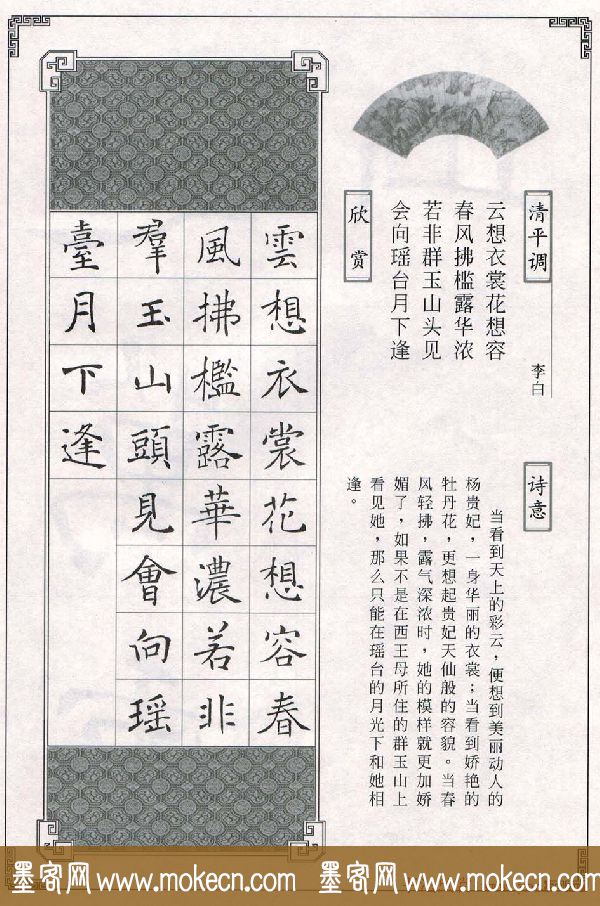 清平调
李白
云想衣裳花想容
春风拂槛露华浓
若非群玉山头见
会向瑶台月下逢
欣赏
雲想衣裳花想容春
風拂檻露華濃若非
羣玉山頭見會向瑶
臺月下逢
诗意
当看到天上的彩云，便想到美丽动人的
杨贵妃，一身华丽的衣裳；当看到娇艳的
牡丹花，更想起贵妃天仙般的容貌。当春
风轻拂，露气深浓时，她的模样就更加娇
媚了，如果不是在西王母所住的群玉山上
看见她，那么只能在瑶台的月光下和她相
逢。
墨客网 www.mokecn.com 墨客网 www.mokecn.com